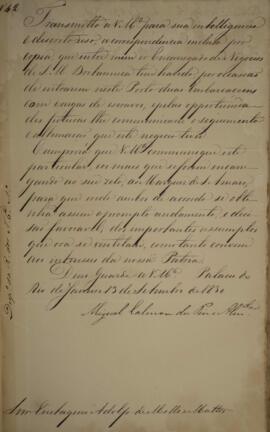 Transmetto a V. M.ce para sua intelligencia
e discreto uso, a correspondencia inclusa por
copia, que entre mim e o Encarregado de Negocios
de S. M. Britannica tem havido, por occasião
de entrarem neste Porto duas embarcações
com cargas de escravos, e pelas opportunidades
futuras lhe communicarei o seguimento
e solução que este negocio tiver.
Cumprirá que V. M.ce communique este
particular, e os mais que se forem encarregando
ao seu zelo, ao Marquez de S. Amaro,
para que indo ambos de accordo se obtenha
assim o prompto andamento e decisão
favoravel, dos importantes assumptos
que ora se ventilam, com tanto
aos interesses da nossa Patria.
Deos Guarde a V. M.ce Palacio do
Rio de Janeiro 13 de Setembro de 1830
Miguel Calmon du Pin e Alm.da
Snr. Eustaquio Adolfo de Mello Mattos